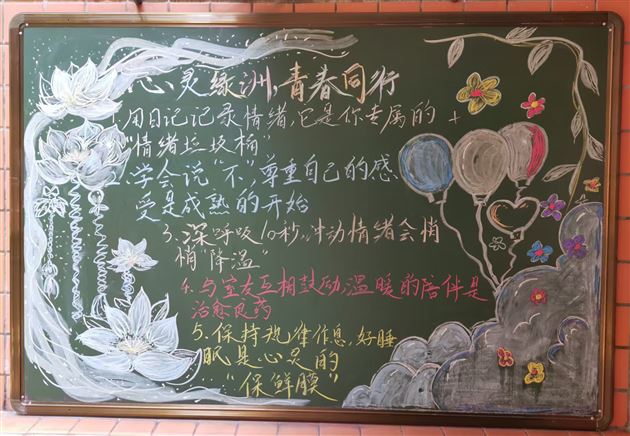 心灵绿洲，青春同行
1.用日记记录情绪，它是你专属的
“情绪垃圾桶”
2.学会说“不”，尊重自己的感
受是成熟的开始
3.深呼吸10秒，冲动情绪会悄
悄“降温”
4.与室友互相鼓励，温暖的陪伴是
治愈良药
5.保持规律作息，好睡
眠是心灵的
“保鲜膜”